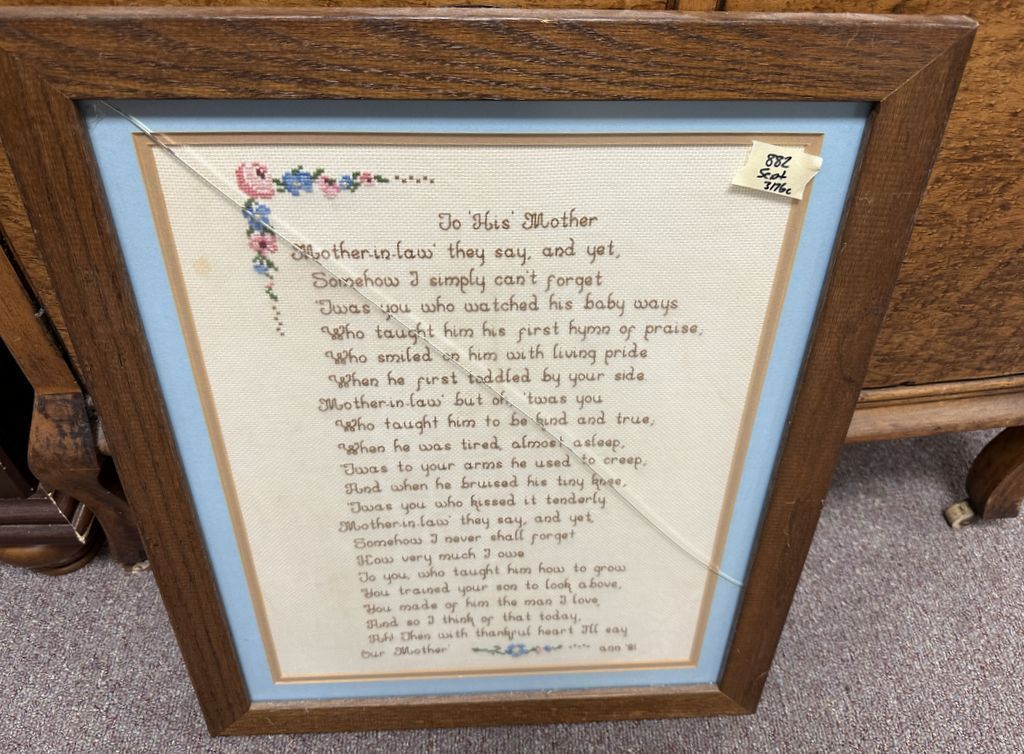 882
Sept
To 'His' Mother
'Mother-in-law' they say, and yet,
Somehow I simply can't forget
'Twas you who watched his baby ways
Who taught him his first hymn of praise,
Who smiled on him with living pride
When he first toddled by your side.
'Mother-in-law' but oh, 'twas you
Who taught him to be kind and true,
When he was tired, almost asleep,
'Twas to your arms he used to creep,
And when he bruised his tiny knee,
'Twas you who kissed it tenderly
'Mother-in-law' they say, and yet,
Somehow I never shall forget
How very much I owe
To you, who taught him how to grow
You trained your son to look above,
You made of him the man I love,
And so I think of that today,
'Ah! Then with thankful heart I'll say
Our Mother'
ann '81